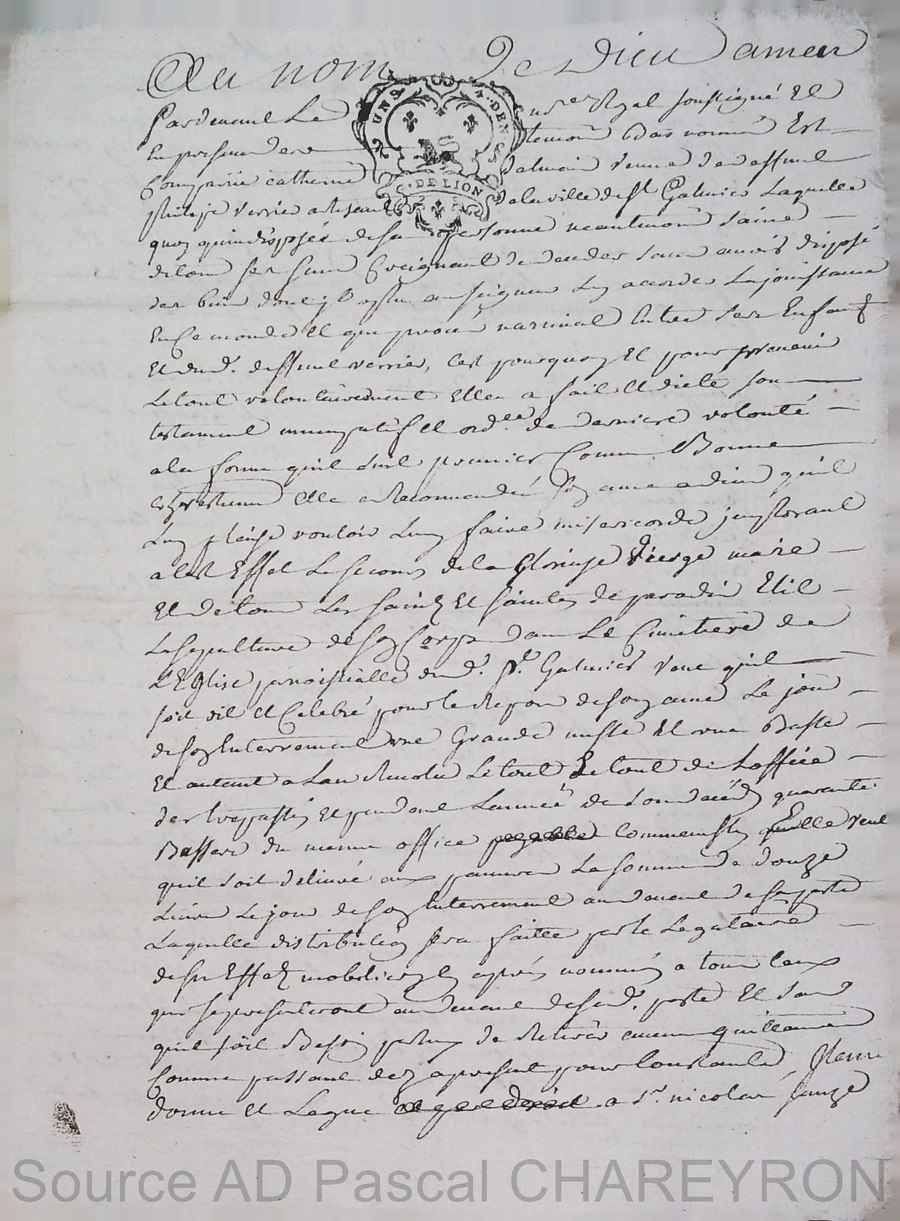 Au nom de Dieu amen
Pardevant Le no.re Royal soussigné Et
En presence des temoins Bas nommés Est
Comparüe catherine palmier veuve de deffunt
philipe verrier artisan dela ville de St Galmier Laquelle
quoy qu'indisposée de sa personne neantmoins saine
de tous ses sens Craignant de deceder sans avoir disposé
des biens dont il a plu au seigneur luy accorder La jouissance
En Ce monde Et que procès narrivent Entre ses Enfants
Et dud. deffunt verrier, C'est pourquoy Et pour prevenir
Le tout volontairement Elle a fait Et dicté son
testament nuncupatif Et ord.ce de derniere volonté
a la forme qu'il suit premier Comme Bonne
chretienne Elle a Recommandé son ame a dieu qu'il
Luy plaise vouloir Luy faire misericorde jmplorant
a cet Effet Le secours de la Glorieuse Vierge marie
Et de tous Les saints Et saintes de paradis Elit
La sepulture de son Corps dans Le Cimetiere de
L'Eglise paroissialle dud. St. Galmier veut qu'il
soit dit Et Celebré pour le Repos de son ame Le jour
de son Enterrement une Grande messe Et une Basse
Et autant a Lan Revolu Le tout de Loffice
des trepassés Et pendant Lannée de son deced quarante
Basses du meme office Commemesses Elle veut
qu'il soit delivré aux pauvres La somme de douze
Livres Le jour de son Enterrement audevant de sa porte
Laquelle distribution sera faitte par le Legataire
de ses Effets mobiliers cy après nommé a tous Ceux
qui se presenteront audevant de sad. porte Et sans
qu'il soit Besoin par luy de Retirer aucune quittance
Comme passant dez apresent pour Constante Jtem
donne Et Legue a Sr. nicolas